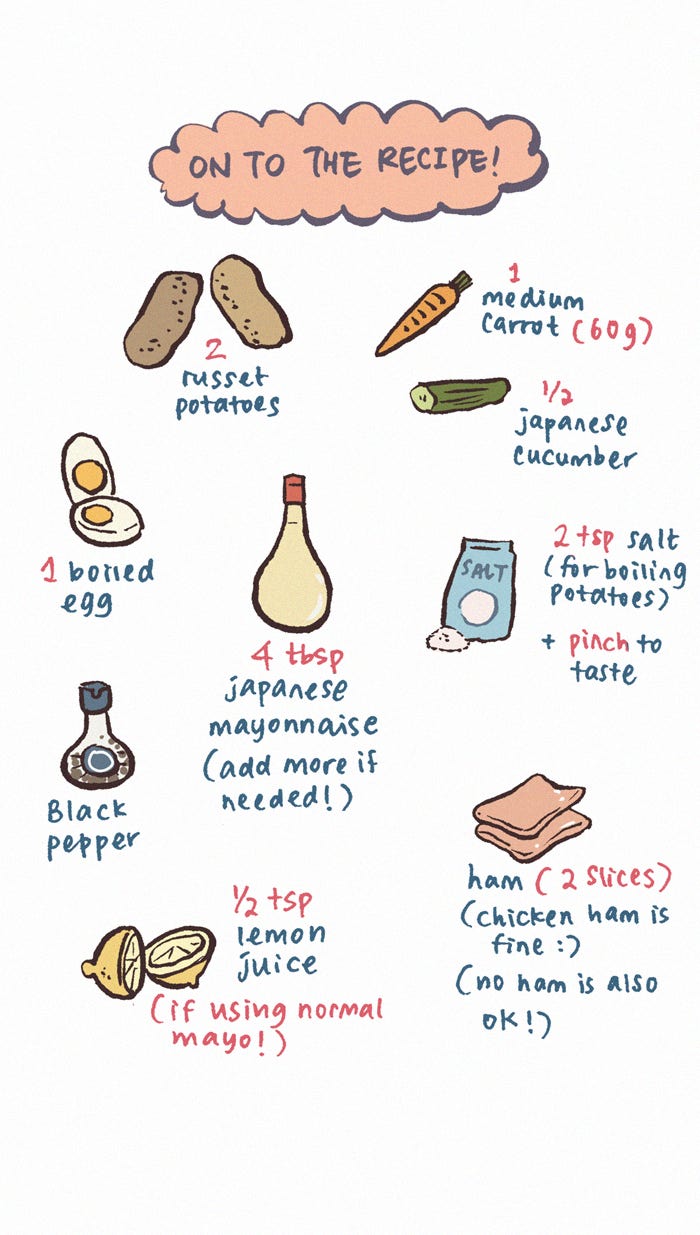 ON TO THE RECIPE!
2
russet
potatoes
1
medium
carrot (60g)
1/2
japanese
cucumber
1 boiled
egg
4 tbsp
japanese
mayonnaise
(add more if
needed!)
SALT
2 tsp salt
(for boiling
potatoes)
+ pinch to
taste
Black
pepper
ham (2 slices)
(chicken ham is
fine :)
(no ham is also
ok!)
1/2 tsp
lemon
juice
(if using normal
mayo!)